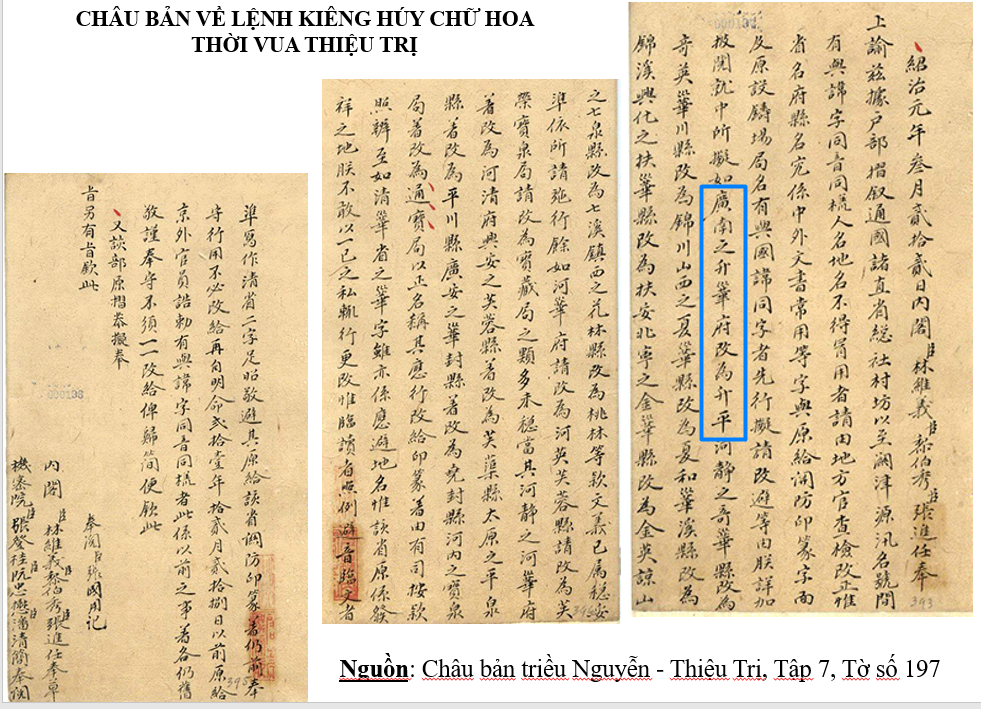 CHÂU BẢN VỀ LỆNH KIÊNG HÚY CHỮ HOA
THỜI VUA THIỆU TRỊ
紹治元年叁月貳拾貳日内閣臣林維義臣黎伯秀臣張進任奉
上諭茲據户部摺叙通國諸直省総社村坊以至澗津源汛名號間
有與諱字同音同樣人名地名不得冐用者請由地方官查檢改正惟
省名府縣名寔係中外文書常用等字與原給関防印篆字面
及原設鑄塲局名有與國諱同字者先行擬請改避等由朕詳加
披閲就中所擬如廣南之升華府改為升平河靜之奇華縣改為
奇英華川縣改為錦川山西之夏華縣改為夏和華溪縣改為
錦溪興化之扶華縣改為扶安北寧之金華縣改為金英諒山
之七泉縣改為七溪鎮西之花林縣改為桃林等欵文義已属穏安
準依所請施行餘如河華府請改為河英芙蓉縣請改為芙
藥寶泉局請改為寶藏局之類多未穏當其河靜之河華府
著改為河清府興安之芙蓉縣着改為芙蕖縣太原之平泉
縣着改為平川縣廣安之華封縣着改為堯封縣河内之寶泉
局着改為通寶局以正名稱其應行改給印篆着由有司按欵
照辦至如清華省之華字雖亦係應避地名惟該省原係發
祥之地朕不敢以一己之私輒行更改惟臨讀者照例避音臨文者
準寫作清省二字足昭敬避其原給該省関防印篆着仍前奉
守行用不必改給再向明命貳拾壹年拾貳月貳拾捌日以前原給
京外官員誥勅有與諱字同音同樣者此係以前之事着各仍舊
敬謹奉守不須一一改給俾歸簡便欽此
又該部原摺恭擬奉
旨另有旨欽此
奉閲臣張國用記
内閣臣林維義臣黎伯秀臣張進任奉草
機密院臣張登桂臣阮忠懋臣潘清簡奉閲
000196
393
395
Nguồn: Châu bản triều Nguyễn - Thiệu Trị, Tập 7, Tờ số 197